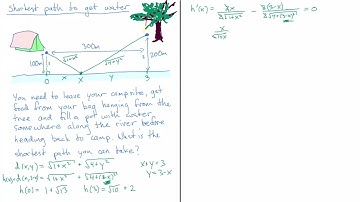 Shortest path to get water
300m
100m
1
√1+x²
√4+y²
2
200m
0
x
x
y
3
You need to leave your campsite, get
food from your bag hanging from the
tree and fill a pot with water
somewhere along the river before
heading back to camp. What is the
shortest path you can take?
d(x,y) = √1+x² + √4+y²
x+y=3
h(x)=d(x,3-x) = √1+x² + √4+(3-x)²
y=3-x
h(0) = 1+√13
h(3) = √10 + 2
h'(x) = 2x / 2√1+x² - 2(3-x) / 2√4+(3-x)² = 0
x / √1+x